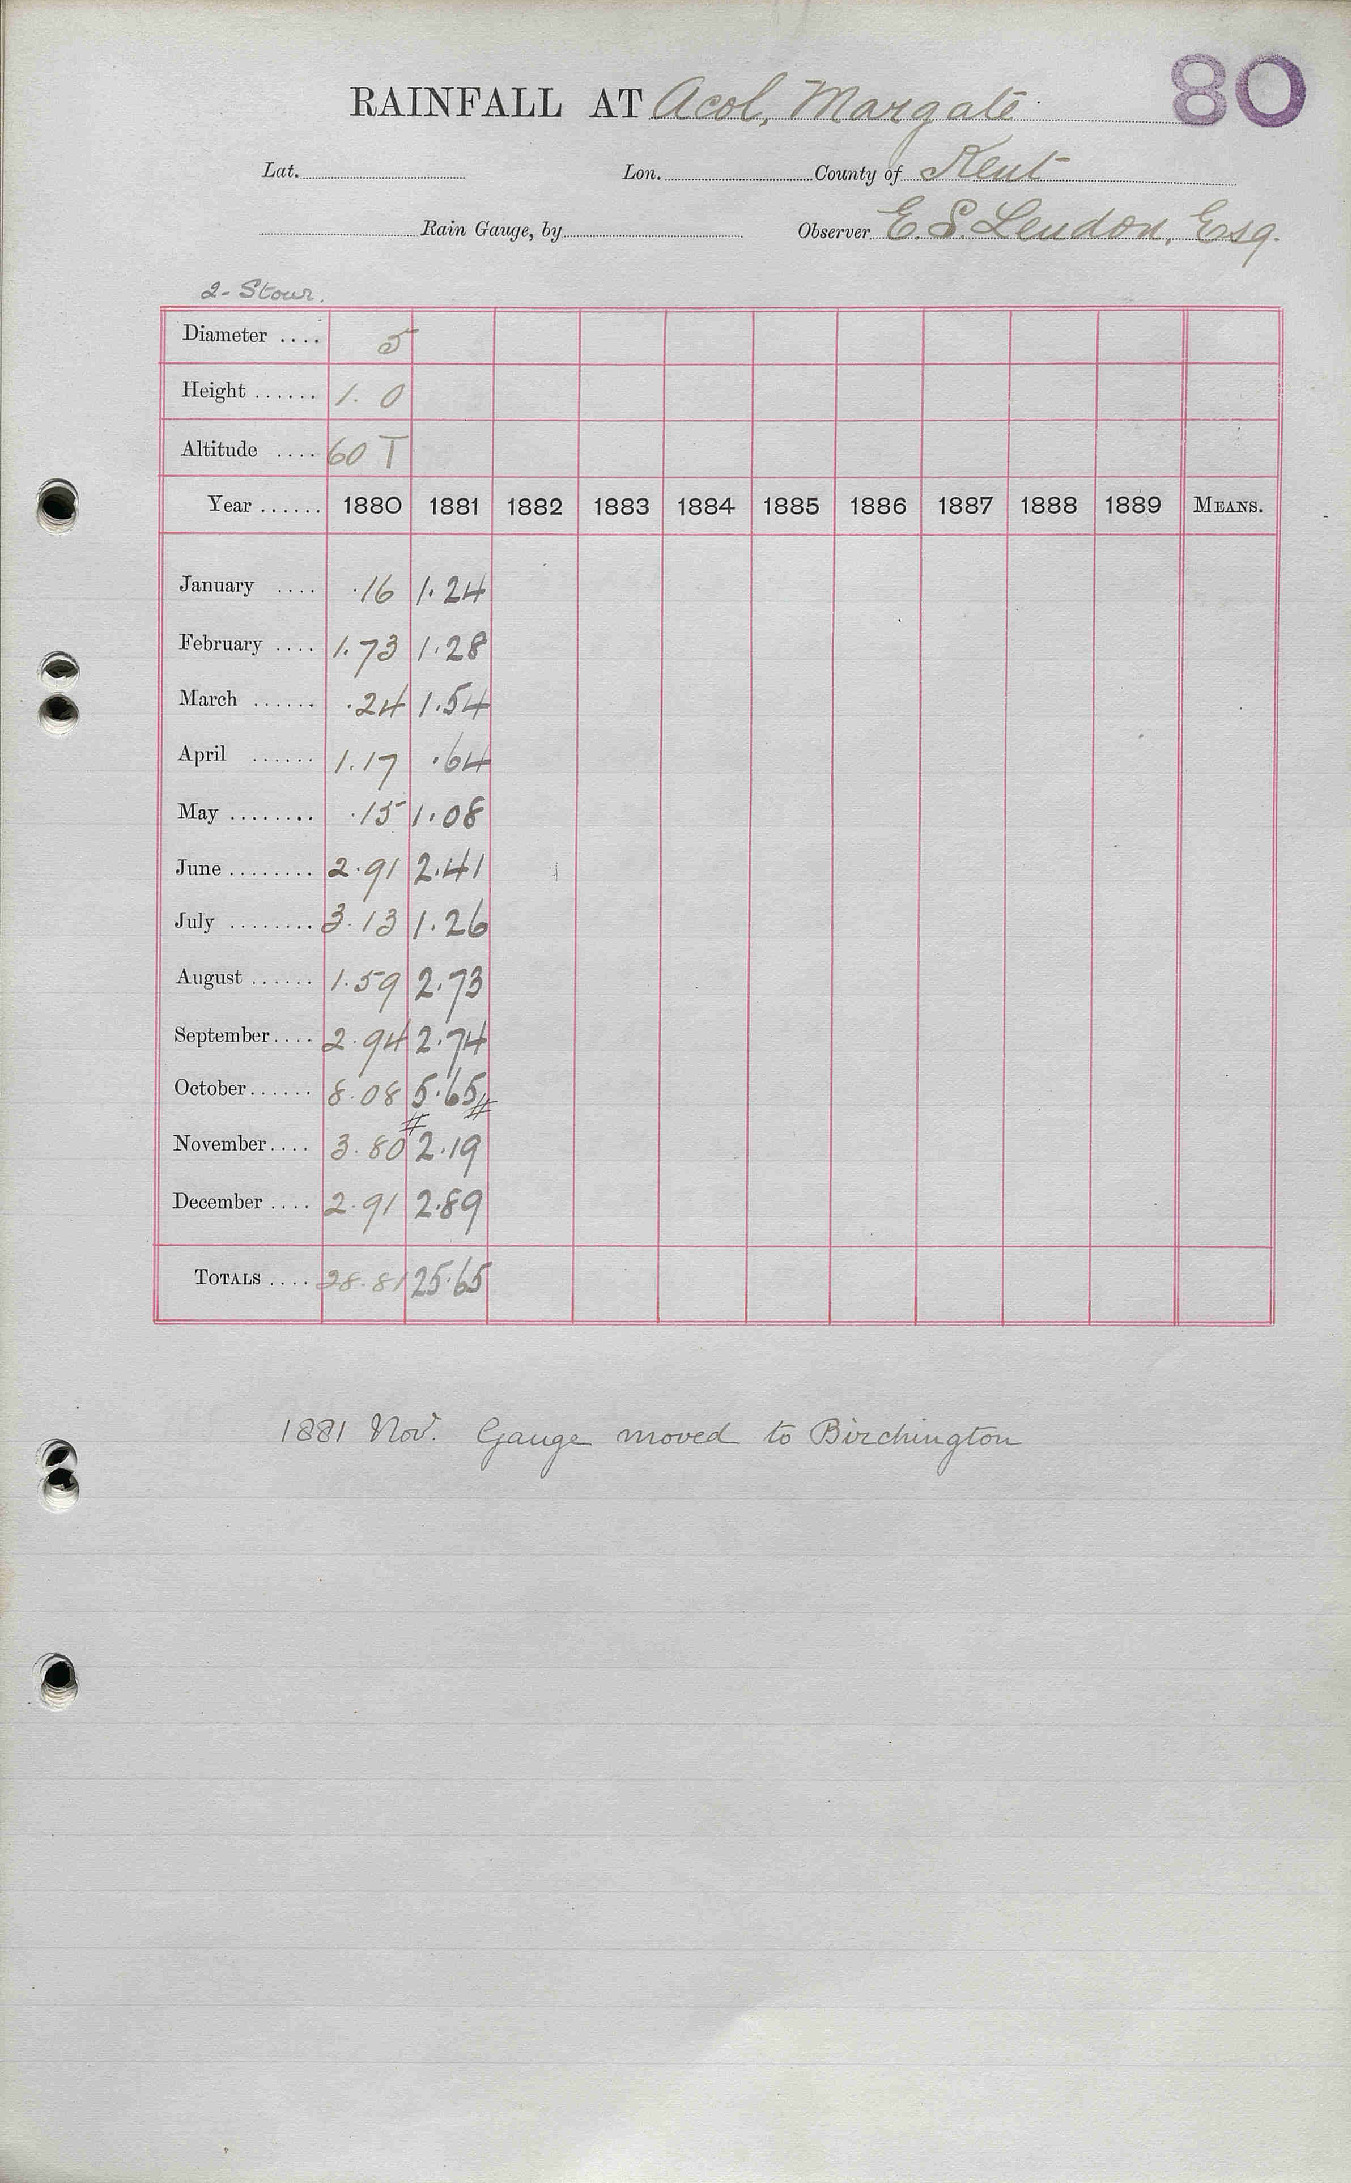 80
RAINFALL AT Acol, Margate
Lat. Lon. County of Kent
Rain Gauge, by Observer E. S. Lendon, Esq.
2- Stour.
Diameter .... 5
Height ...... 1. 0
Altitude .... 60 T
Year ...... 1880 1881 1882 1883 1884 1885 1886 1887 1888 1889 MEANS.
January .... .16 1.24
February .... 1.73 1.28
March ...... .24 1.54
April ...... 1.17 .64
May ........ .15 1.08
June ........ 2.91 2.41
July ........ 3.13 1.26
August ...... 1.59 2.73
September.... 2.94 2.74
October...... 8.08 5.65
# #
November.... 3.80 2.19
December .... 2.91 2.89
TOTALS .... 28.81 25.65
1881 Nov. Gauge moved to Birchington